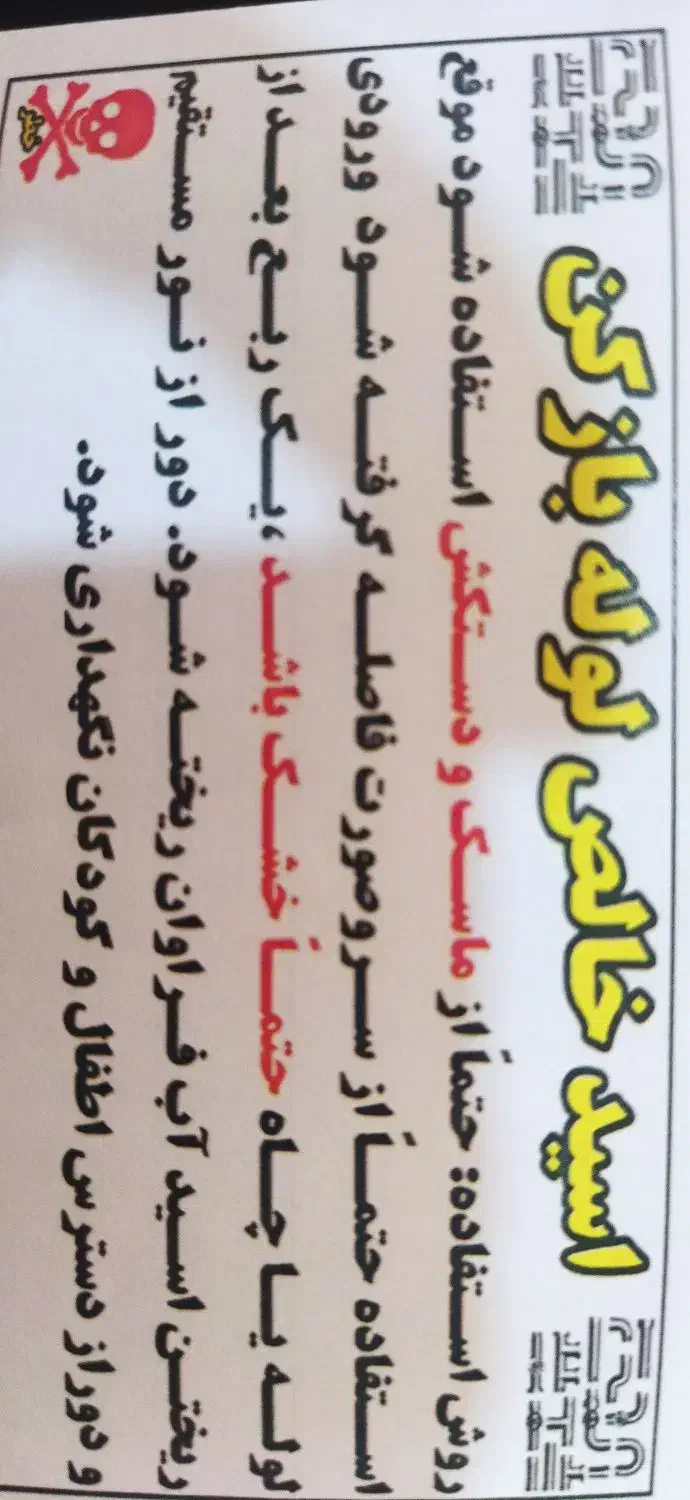 اسید خالص لوله باز کن
روش استفاده: حتماً از ماسک و دستکش استفاده شود موقع
استفاده حتماً از سر و صورت فاصله گرفته شود ورودی
لوله یا چاه حتماً خشک باشد، یک ربع بعد از
ریختن اسید آب فراوان ریخته شود. دور از نور مستقیم
و دور از دسترس اطفال و کودکان نگهداری شود.
خطر